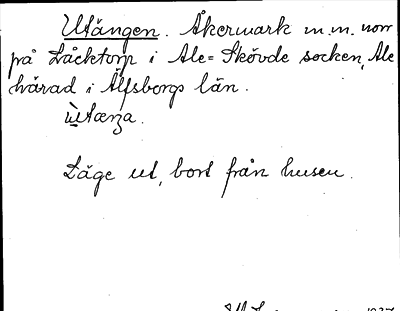 Utängen. Åkermark m.m. norr
på Låcktorp i Ale-Skövde socken, Ale
härad i Älfsborgs län.

Läge ut, bort från husen.